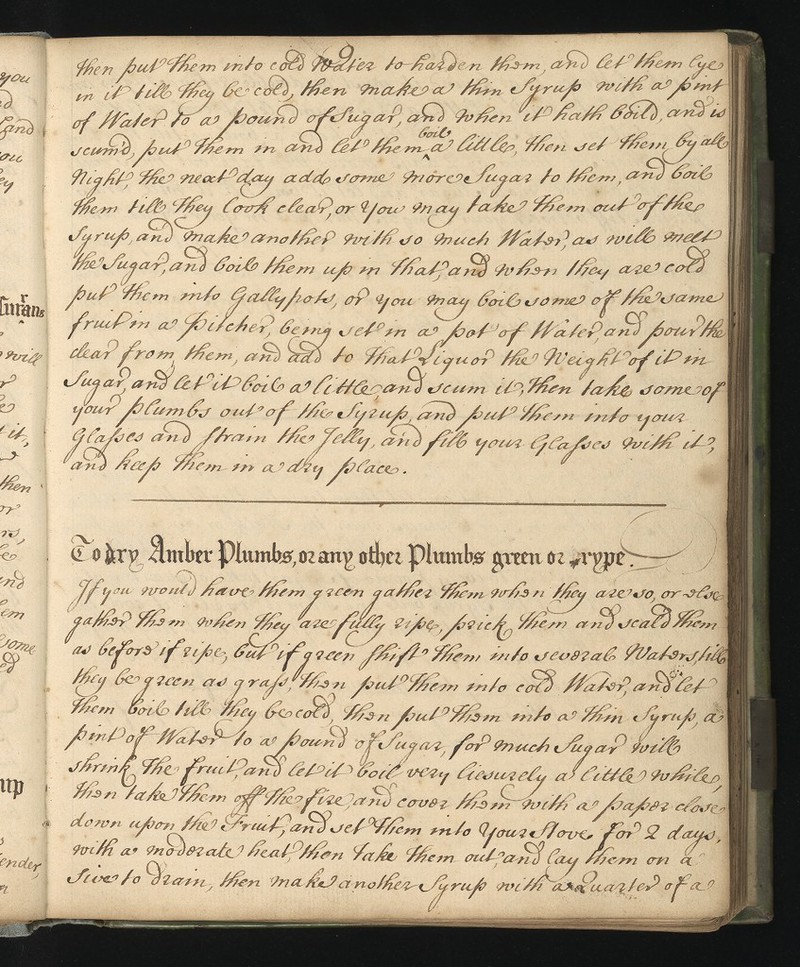 9
then put them into cold Water to harden them, and let them lye
in it till they be cold, then make a thin Syrup with a pint
of Water to a pound of Sugar, and when it hath boild, and is
scum'd, put them in and let them boil a little, then set them by all
Night, the next day add some more Sugar to them, and boil
them till they look clear, or you may take them out of the
Syrup, and make another with so much Water, as will melt
the Sugar, and boil them up in that, and when they are cold
put them into Gallypots, or you may boil some of the same
fruit in a Pitcher, being set in a pot of Water, and pour the
clear from them, and add to that Liquor the Weight of it in
Sugar, and let it boil a little and scum it, then take some of
your Plumbs out of the Syrup, and put them into your
Glasses and strain the Jelly, and fill your Glasses with it,
and keep them in a dry place.
To dry Amber Plumbs, or any other Plumbs green or rype.
If you would have them green gather them when they are so, or else
gather them when they are fully ripe, prick them and scald them
as before if ripe, but if green shift them into several Waters, till
they be green as grass, then put them into cold Water, and let
them boil till they be cold, then put them into a thin Syrup, a
pint of Water to a pound of Sugar, for much Sugar will
shrink the fruit, and let it boil very liesurely a little while,
then take them off the fire, and cover them with a paper close
down upon the Fruit, and set them into your Stove for 2 days,
with a moderate heat, then take them out, and lay them on a
Sive to drain, then make another Syrup with a Quarter of a